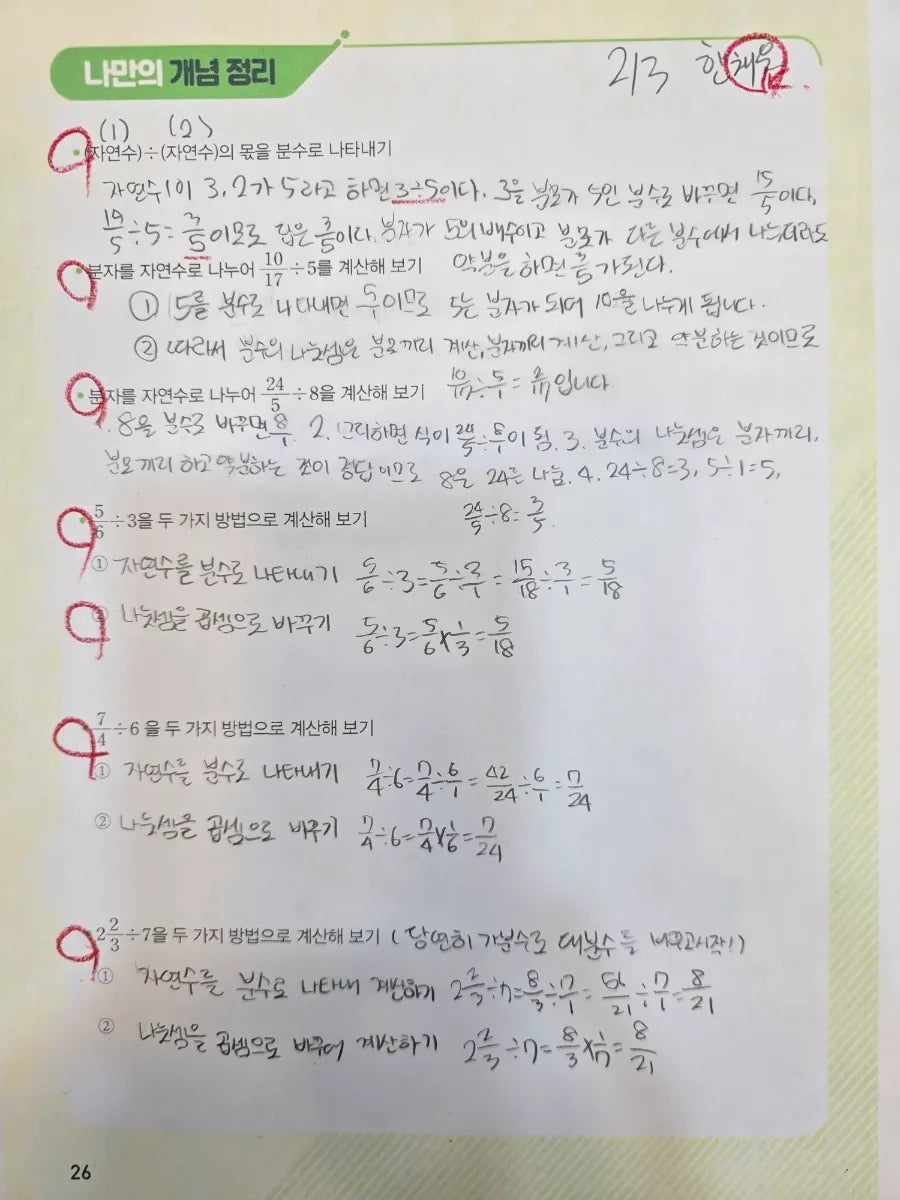 나만의 개념 정리
213 한채움
(1) (2)
(자연수)÷(자연수)의 몫을 분수로 나타내기
자연수1이 3, 2가 5라고 하면 3÷5이다. 3을 분모가 5인 분수로 바꾸면 15/5이다,
15/5÷5=3/5이므로 답은 3/5이다. 분자가 5의 배수이고 분모가 다른 분수에서 나누더라도
약분을 하면 3/5가 된다.
분자를 자연수로 나누어 10/17÷5를 계산해 보기
① 5를 분수로 나타내면 5/1이므로 5는 분자가 되어 10을 나누게 됩니다.
② 따라서 분수의 나눗셈은 분모끼리 계산, 분자끼리 계산, 그리고 약분하는 것이므로
10/17÷5/1=2/17입니다
분자를 자연수로 나누어 24/5÷8을 계산해 보기
1. 8을 분수로 바꾸면 8/1. 2. 정리하면 식이 24/5÷8/1이 됨. 3. 분수의 나눗셈은 분자끼리,
분모끼리 하고 약분하는 것이 정답이므로 8은 24를 나눔. 4. 24÷8=3, 5÷1=5,
24/5÷8=3/5.
5/6÷3을 두 가지 방법으로 계산해 보기
① 자연수를 분수로 나타내기 5/6÷3=5/6÷3/1=15/18÷3/1=5/18
② 나눗셈을 곱셈으로 바꾸기 5/6÷3=5/6×1/3=5/18
7/4÷6을 두 가지 방법으로 계산해 보기
① 자연수를 분수로 나타내기 7/4÷6=7/4÷6/1=42/24÷6/1=7/24
② 나눗셈을 곱셈으로 바꾸기 7/4÷6=7/4×1/6=7/24
2 2/3÷7을 두 가지 방법으로 계산해 보기 (당연히 가분수로 대분수를 바꾸고시작!)
① 자연수를 분수로 나타내 계산하기 2 2/3÷7=8/3÷7/1=56/21÷7/1=8/21
② 나눗셈을 곱셈으로 바꾸어 계산하기 2 2/3÷7=8/3×1/7=8/21
26